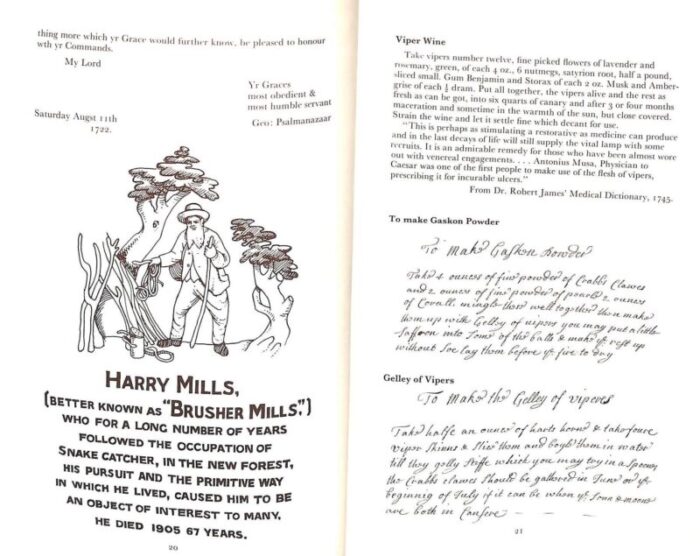 thing more which yr Grace would further know, be pleased to honour
wth yr Commands.
My Lord
Yr Graces
most obedient &
most humble servant
Geo: Psalmanazaar
Saturday Augst 11th
1722.
HARRY MILLS,
(BETTER KNOWN AS "BRUSHER MILLS",)
WHO FOR A LONG NUMBER OF YEARS
FOLLOWED THE OCCUPATION OF
SNAKE CATCHER, IN THE NEW FOREST,
HIS PURSUIT AND THE PRIMITIVE WAY
IN WHICH HE LIVED, CAUSED HIM TO BE
AN OBJECT OF INTEREST TO MANY.
HE DIED 1905 67 YEARS.
20
Viper Wine
Take vipers number twelve, fine picked flowers of lavender and
rosemary, green, of each 4 oz., 6 nutmegs, satyrion root, half a pound,
sliced small. Gum Benjamin and Storax of each 2 oz. Musk and Amber-
grise of each ½ dram. Put all together, the vipers alive and the rest as
fresh as can be got, into six quarts of canary and after 3 or four months
maceration and sometime in the warmth of the sun, but close covered.
Strain the wine and let it settle fine which decant for use.
"This is perhaps as stimulating a restorative as medicine can produce
and in the last decays of life will still supply the vital lamp with some
recruits. It is an admirable remedy for those who have been almost wore
out with venereal engagements. . . . Antonius Musa, Physician to
Caesar was one of the first people to make use of the flesh of vipers,
prescribing it for incurable ulcers."
From Dr. Robert James' Medical Dictionary, 1745.
To make Gaskon Powder
To Make Gaskon Powder
Take 4 ounces of fine powder of Crabbs Clawes
and 2 ounces of fine powder of 2 ounces
of Corall. mingle these well together then make
them up with Gelley of vipers you may put a little
Saffoon into some of the balls & make ye rest up
without soe lay them before ye fire to dry
Gelley of Vipers
To Make the Gelley of vipers
Take halfe an ounce of harts horne & take foure
viper skinns & slise them and boyle them in water
till they gelly stiffe which you may try in a spoone
the Crabbs clawes should be gathered in June or ye
beginnig of July if it can be when ye sonn & moone
are both in Cansere — — —
21